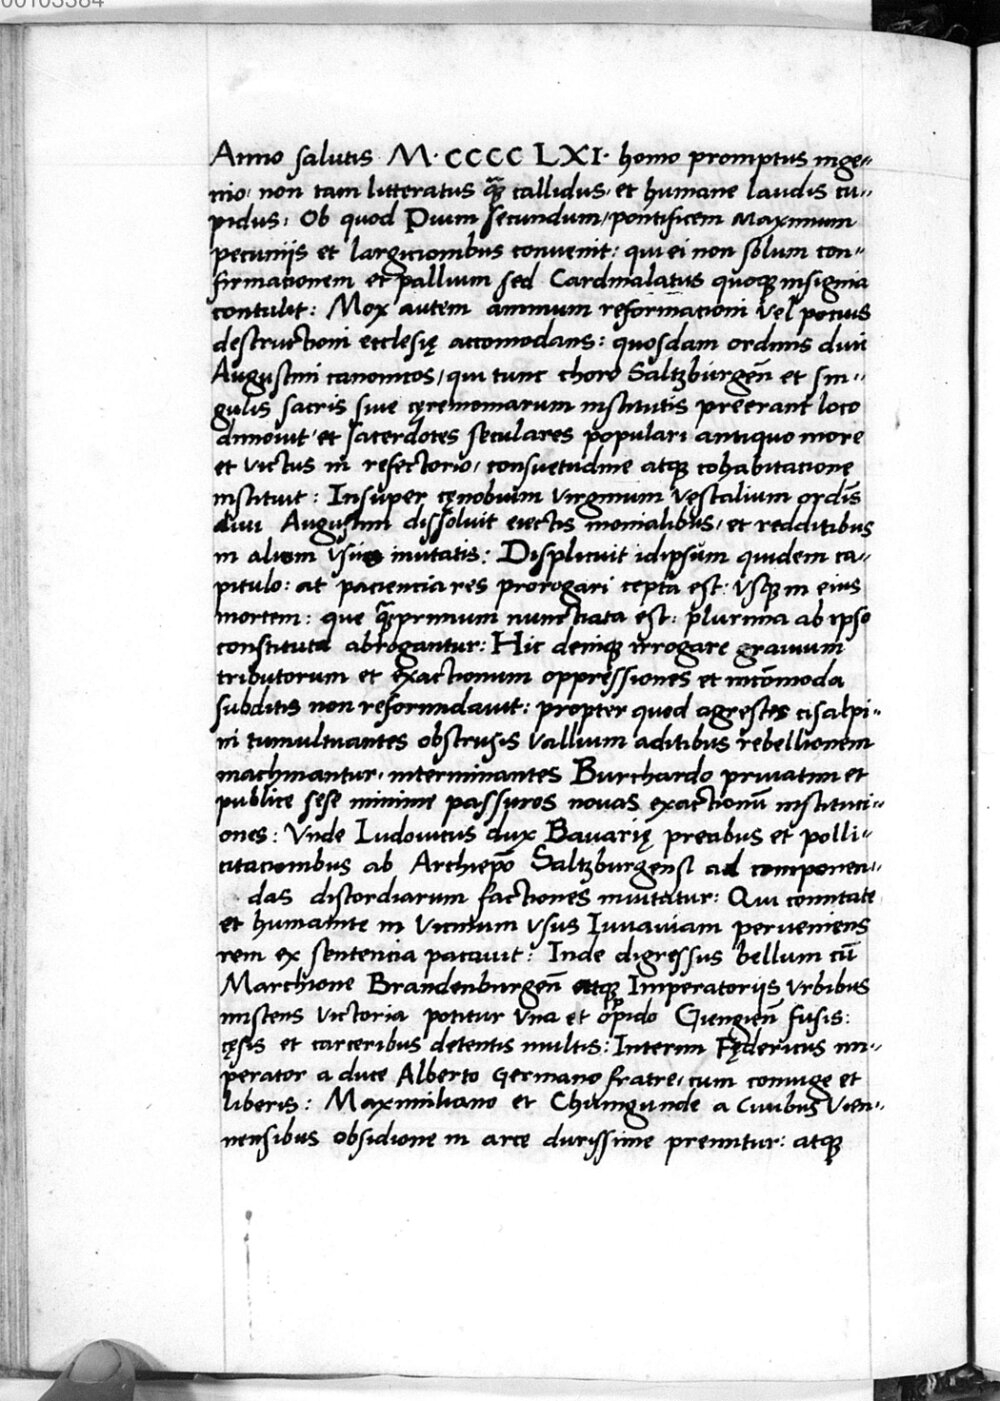 00103384
Anno salutis M·CCCC LXI· homo promptus inge˶
nio/ non tam litteratus q̃ꝫ callidus/ et humane laudis cu˶
pidus/ Ob quod Pium secundum/ pontificem Maximum
pecunijs et largicionibus convenit: qui ei non solum con˶
firmacionem et pallium sed Cardinalatus quoqꝫ insignia
contulit: Mox autem animum reformacioni vel pocius
destructioni ecclesię accomodans: quosdam ordinis divi
Augustini canonicos/ qui tunc choro Saltzburgeñ et sin˶
gulis sacris sive cęremoniarum institutis preerant loco
dimovit/ et sacerdotes seculares populari antiquo more
et victus in refectorio/ consuetudine atqꝫ cohabitacione
instituit: Insuper cęnobium virginum vestalium ordis̃
divi Augustini dissolvit eiectis monialibus/ et redditibus
in alium usus mutatis: Displicuit idipsum quidem ca˶
pitulo: at paciencia res prorogari cepta est: Usqꝫ in eius
mortem: que q̃ꝫprimum nunctiata est: plurima ab ipso
constituta abrogantur: Hic deniqꝫ irrogare gravium
tributorum et exactionum oppressiones et incõmoda
subditis non reformidavit: propter quod agrestes cisalpi˶
ni tumultuantes obstrusis vallium aditibus rebellionem
machinantur/ interminantes Burchardo privatim et
publice sese minime passuros novas exactionũ instituci˶
ones: Unde Ludovicus dux Bavarię precibus et polli˶
citacionibus ab Archiepõ Saltzburgensi ad componen˶
das discordiarum factiones invitatur: Qui comitate
et humanite in vicinium usus Iuvaviam perveniens
rem ex sentencia pacavit: Inde digressus bellum cũ
Marchione Brandenburgeñ atqꝫ Imperatorijs urbibus
miscens victoria potitur una et oppido Giengeñ fusis:
cęsis et carceribus detentis multis: Interim Fędericus im˶
perator a duce Alberto germano fratre/ cum coniuge et
liberis: Maximiliano et Chunigunde a civibus Vien˶
nensibus obsidione in arce durissime premitur: atqꝫ